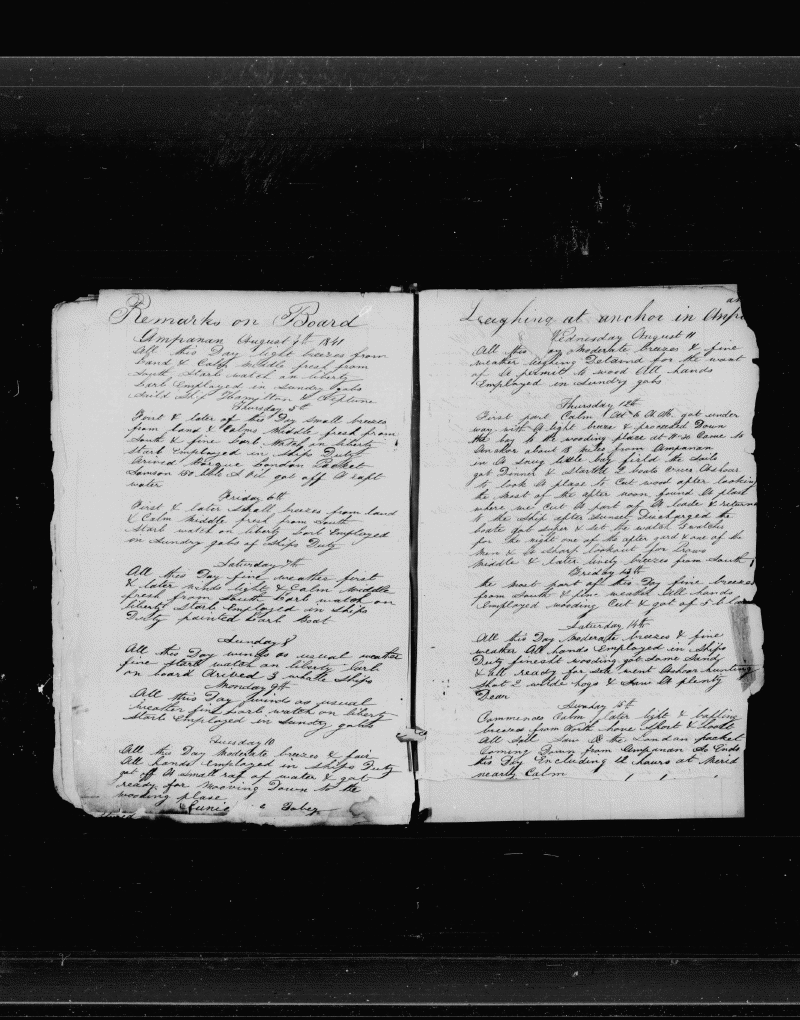 Remarks on Board
Ampanan August 4th 1841
All this Day light breezes from
Land & Calm Middle fresh from
South Starb watch on liberty
Larb Employed in Sundry gobs
Saild Ship Hamilton & Neptune
Thursday 5th
First & later of this Day small breezes
from land & Calms Middle fresh from
South & fine Larb Watch on liberty
Starb Employed in Ships Duty
Arived Barque London Packet
got off A raft
water
Friday 6th
First & later Small breezes from land
& Calm Middle fresh from South
Starb watch on liberty Larb Employed
in Sundry gobs of Ships Duty
Saturday 7th
All this Day fine weather first
& later winds light & Calm Middle
fresh from South Larb watch on
liberty Starb Employed in Ships
Duty painted Larb Boat
Sunday 8
All this Day winds as usual weather
fine Starb watch on liberty Larb
on board Arived 3 whale Ships
Monday 9th
All this Day winds as usual
weather fine Larb watch on liberty
Starb Employed in Sundry gobs
Tuesday 10
All this Day Moderate breezes & fair
All hands Employed in Ships Duty
got off A small raf of water & got
ready for Mooving Down to the
wooding place
Leaghing at anchor in Ampa
Wednesday August 11
All this Day Moderate breezes & fine
weather laying Detaind for the want
of A permit to wood All hands
Employed in Sundry gobs
Thursday 12th
First part Calm At 6 AM got under
way with A light breeze & proceded Down
the bay to the wooding place at Came to
Anchor about 18 Miles from Ampanan
in A snug little bay firld the Sails
got Dinner & Started 2 boats Crews Ashour
to look A place to Cut wood after looking
the most of the after noon found A place
where we Cut A part of A loade & return
to the Ship after Sunset Discharged the
boats got super & set the watch 2 watches
for the night one of the after gard & one of the
men & A sharp lookout for Prows
Middle & later lively breezes from South
Friday 13th
the most part of this Day fine breezes
from South & fine weather All hands
Employed wooding Cut & got of 5 b loa
Saturday 14th
All this Day Moderate breezes & fine
weather All hands Employed in Ships
Duty finesht wooding got some Sandy
& all ready for sea went Ashour hunting
Shot 2 wilde hogs & Saw A plenty
Dear
Sunday 15th
Commences Calm later lite & bafling
breezes from North hove Short & loosd
All Sail Saw the London packet
Coming Down from Ampanan So Ends
this Day Encluding 12 hours at Merid
nearly Calm